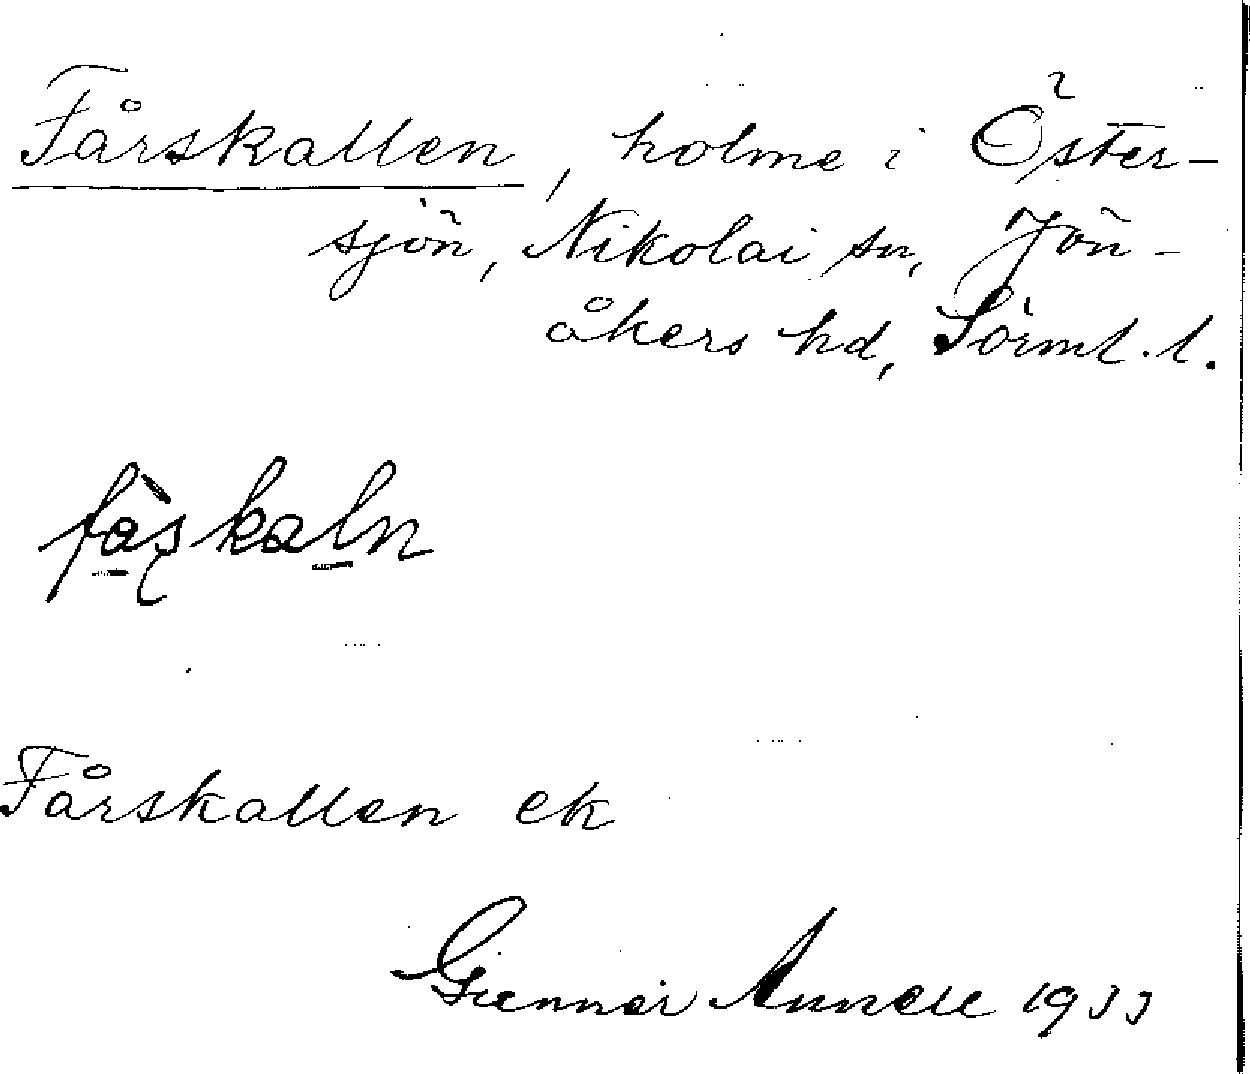 Fårskallen, holme i Öster-
sjön, Nikolai sn, Jön-
åkers hd, Sörml. l.
fàʂkaln
Fårskallen ek
Gunnar Annell 1933